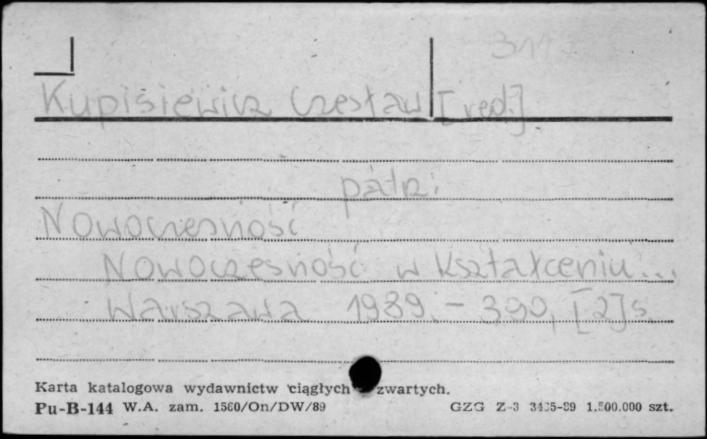 Kupisiewicz Czesław [red.]
patrz:
Nowoczesność
Nowoczesność w kształceniu...
Warszawa 1989. - 390, [2] s.
Karta katalogowa wydawnictw ciągłych zwartych.
Pu-B-144 W.A. zam. 1560/On/DW/89 GZG Z-3 3435-89 1.500.000 szt.